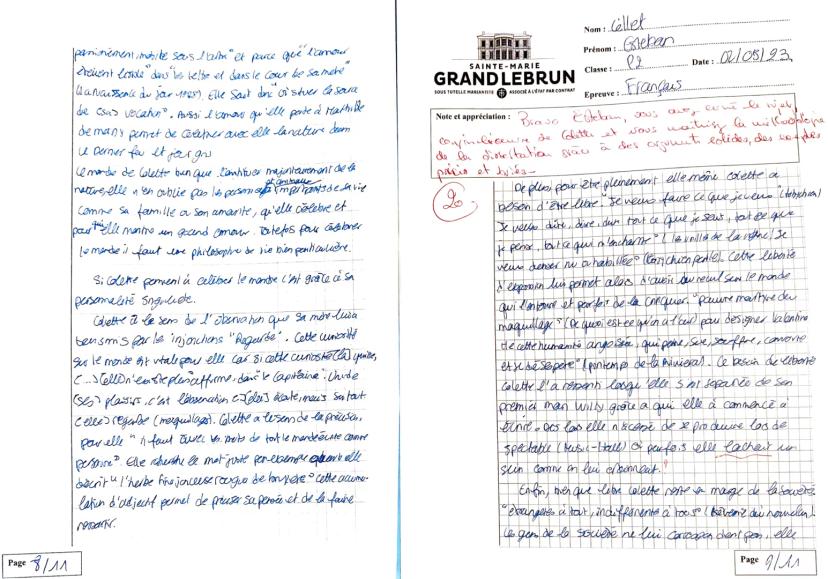 parcimonieusement, invitée sous l'autre" et parce que "l'amour
étaient "dans les lettres et dans le cœur de sa mère"
(La naissance du jour 1928). Elle sait donc
vocation". Aussi l'amour qu'elle porte à Mathilde
de Morny permet de célébrer avec elle la nature dans
Le dernier feu et jour gris
Le monde de Colette bien que constitué majoritairement de la
nature, elle n'en oublie pas les personnes importantes de la vie
comme sa famille ou son amante, qu'elle célèbre et
pour qui elle montre un grand amour. Toutefois pour célébrer
le monde il faut une philosophie de vie bien particulière.
Si Colette parvient à célébrer le monde c'est grâce à sa
personnalité singulière.
Colette a le sens de l'observation que sa mère lui a
transmis par les injonctions "Regarde". Cette curiosité
sur le monde est vitale pour elle car si cette curiosité (la) quitte,
(...) (elle) n'existe plus" affirme, dans le Capitaine. L'un de
(ses) plaisirs, c'est l'observation
(elle) regarde (maquillages). Colette a le sens de la précision,
pour elle "il faut avec les mots de tout le monde écrire comme
personne". Elle recherche le mot juste par exemple quand elle
décrit "l'herbe fine, joncseuse rougie de bruyère" cette accumu-
lation d'adjectif permet de préciser sa pensée et de la faire
ressortir.
Page 8/11
SAINTE-MARIE
GRAND LEBRUN
SOUS TUTELLE MARIANISTE ASSOCIÉ À L'ÉTAT PAR CONTRAT
Nom : Cellet
Prénom : Esteban
Classe : P2 Date : 02/05/23
Epreuve : Français
Note et appréciation : Bravo Esteban, vous avez cerné la vie
de Colette et vous maîtrisez la méthodologie
de la dissertation grâce à des arguments solides, des exemples
précis et variés.
20
De plus, pour être pleinement elle même Colette a
besoin d'être libre. "Je veux faire ce que je veux" (Toby chien)
"Je veux dire, dire, dire tout ce que je sais, tout ce que
je pense, tout ce qui m'enchante" (les vrilles de la vigne) "Je
veux danser nue ou habillée" (Toby chien parle). Cette liberté
d'expression lui permet alors d'avoir du recul sur le monde
qui l'entoure et parfois de la critiquer. "pauvre martyre du
maquillage" (De quoi est-ce qu'on a l'air) pour désigner Valentine
de cette humanité angoissée, qui peine, sue, souffre, convoite
et se désespère" (printemps de la Riviera). Ce besoin de liberté
Colette l'a ressenti lorsqu'elle s'est séparée de son
premier mari Willy grâce à qui elle a commencé à
écrire. Dès lors elle n'a cessé de se produire lors de
spectacle (Music-Hall) où parfois elle lachait un
sein comme on lui ordonnait.
Enfin, bien que libre Colette reste en marge de la société.
"étrangères à tout, indifférentes à tous" (Rêverie du nouvel an).
Les gens de la société ne lui correspondent pas, elle
Page 9/11